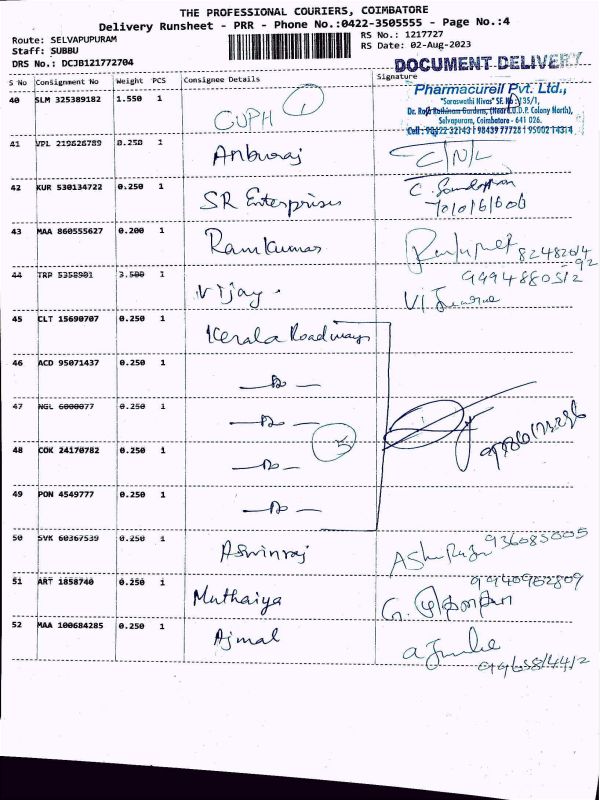 THE PROFESSIONAL COURIERS, COIMBATORE
Delivery Runsheet - PRR - Phone No.:0422-3505555 - Page No.:4
Route: SELVAPUPURAM
RS No.: 1217727
Staff: SUBBU
RS Date: 02-Aug-2023
DRS No.: DCJB121772704
DOCUMENT DELIVERY
S No Consignment No Weight PCS Consignee Details Signature
Pharmacureil Pvt. Ltd.,
"Saraswathi Nivas" SF. No 135/1,
Selvapuram, Coimbatore - 641 026.
40 SLM 325389182 1.550 1 CUPH 1
41 VPL 219626789 0.250 1 Anburaj C/N/L
42 KUR 530134722 0.250 1 SR Enterprises
43 MAA 860555627 0.200 1 Ramkumar
44 TRP 5358901 3.500 1 Vijay.
45 CLT 15690707 0.250 1 Kerala Roadways
46 ACD 95071437 0.250 1 — Do —
47 NGL 6000077 0.250 1 — Do —
5
48 COK 24170782 0.250 1 — Do —
49 PON 4549777 0.250 1 — Do —
50 SVK 60367539 0.250 1 Aswinraj 936085005
51 ART 1858740 0.250 1 Muthaiya
52 MAA 100684285 0.250 1 Ajmal